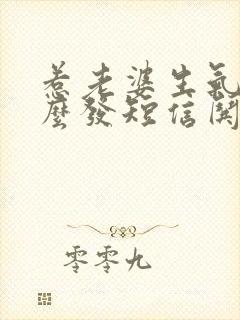 惹老婆生氣
麼發短信関
零零九